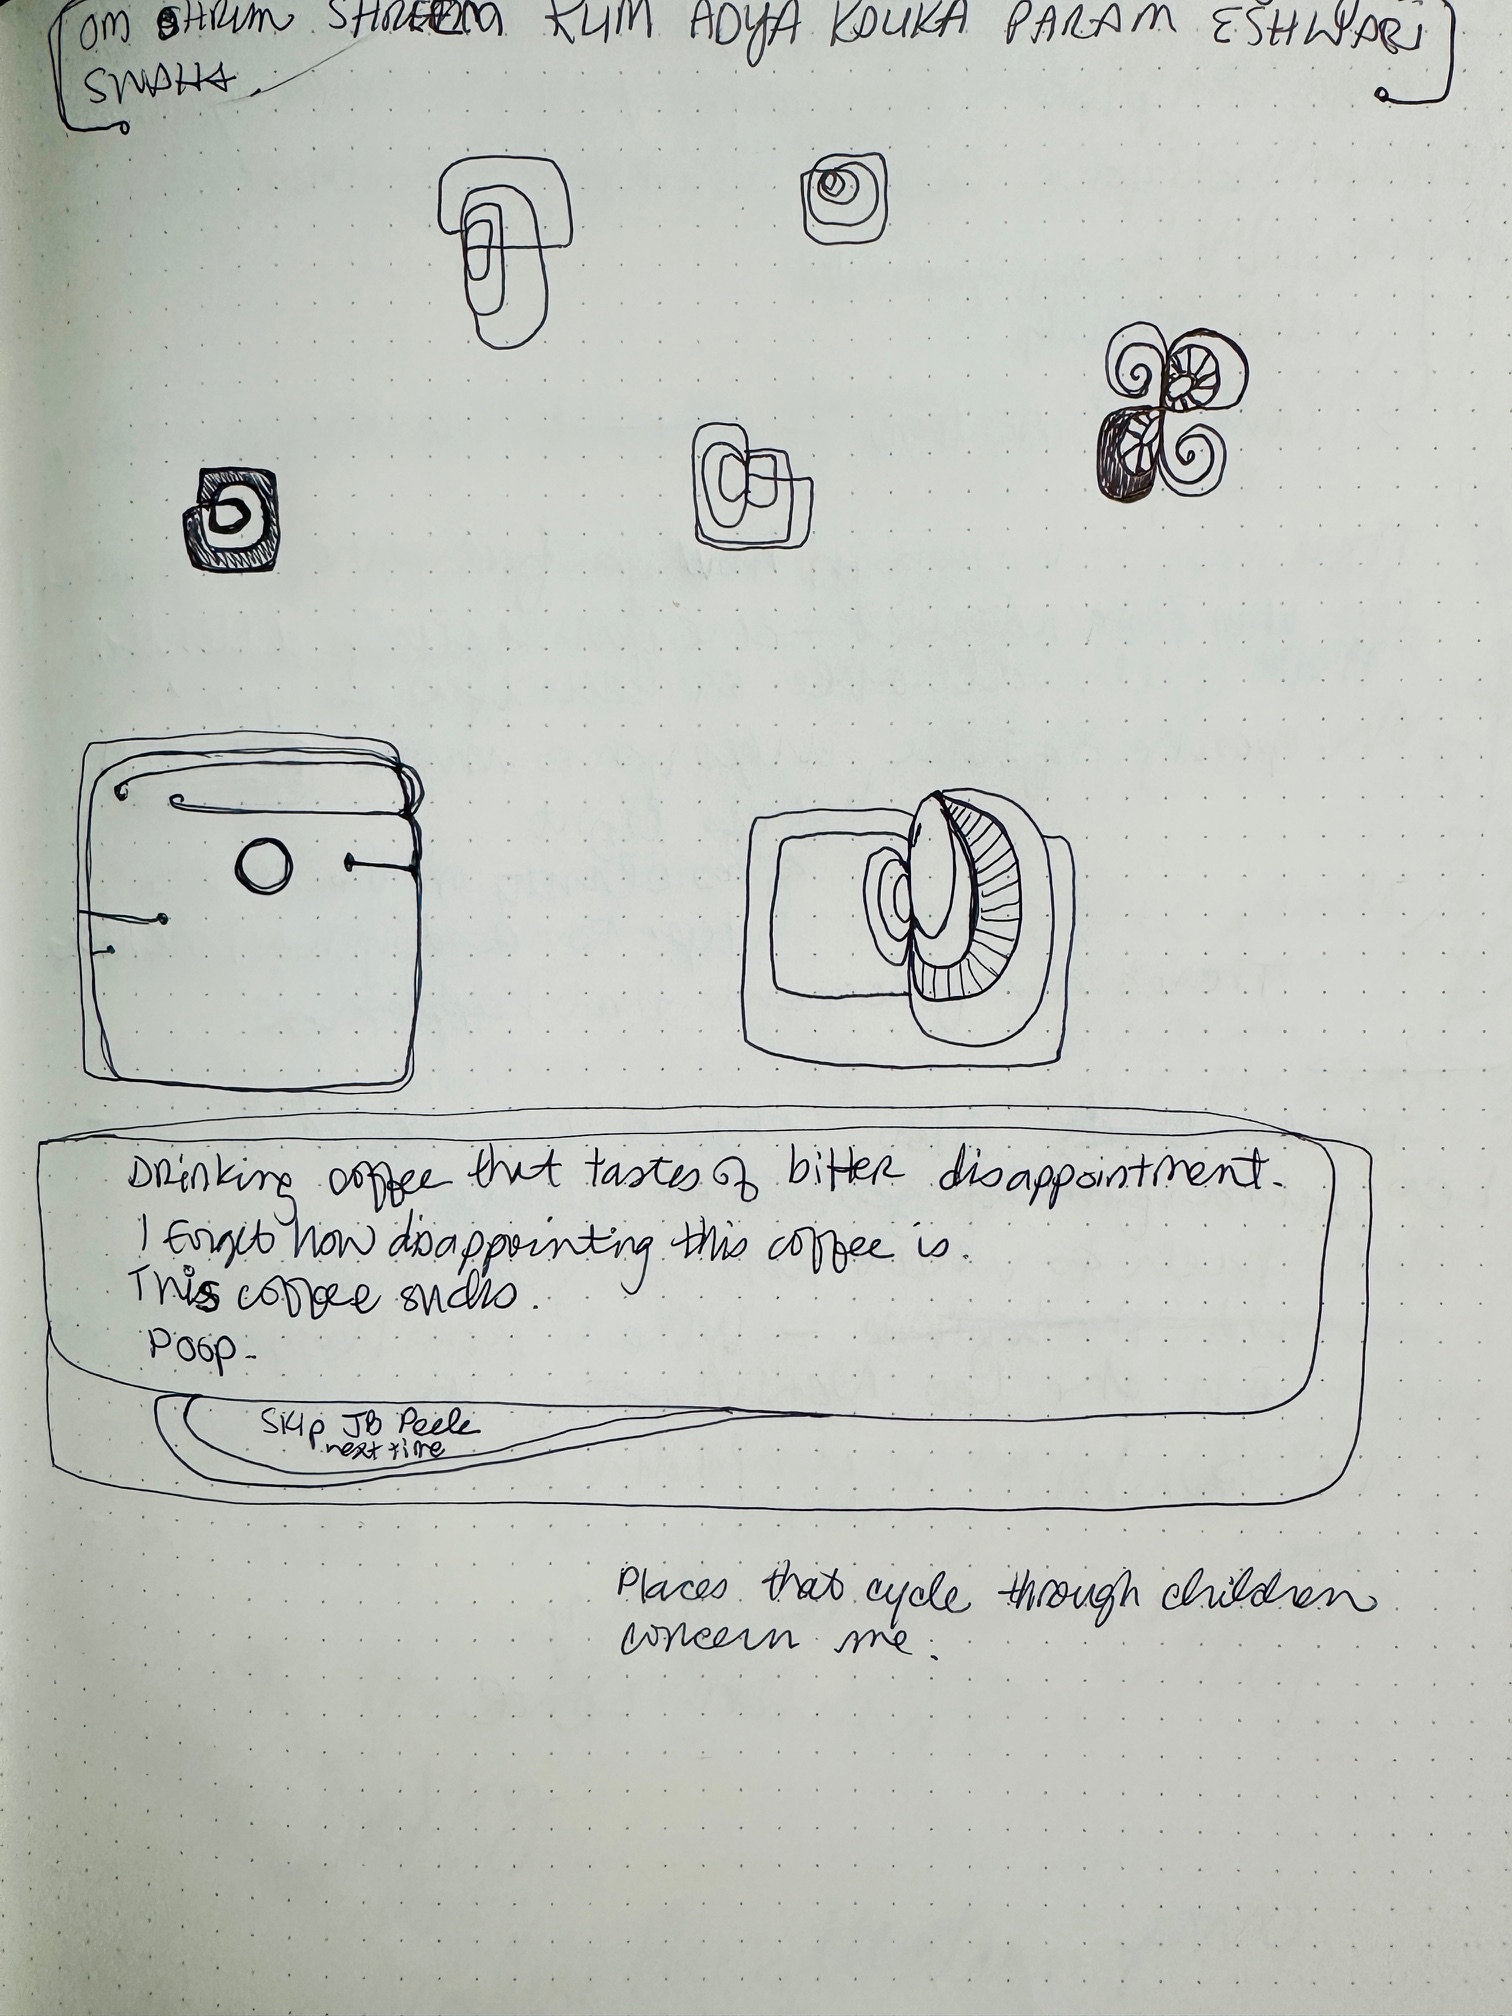 OM SHRIM SHREEM KLIM ADYA KOLIKA PARAM ESHWARI
SWAHA.
Drinking coffee that tastes of bitter disappointment.
I forget how disappointing this coffee is.
This coffee sucks.
Poop.
Skip JB Peele
next time
Places that cycle through children
concern me.